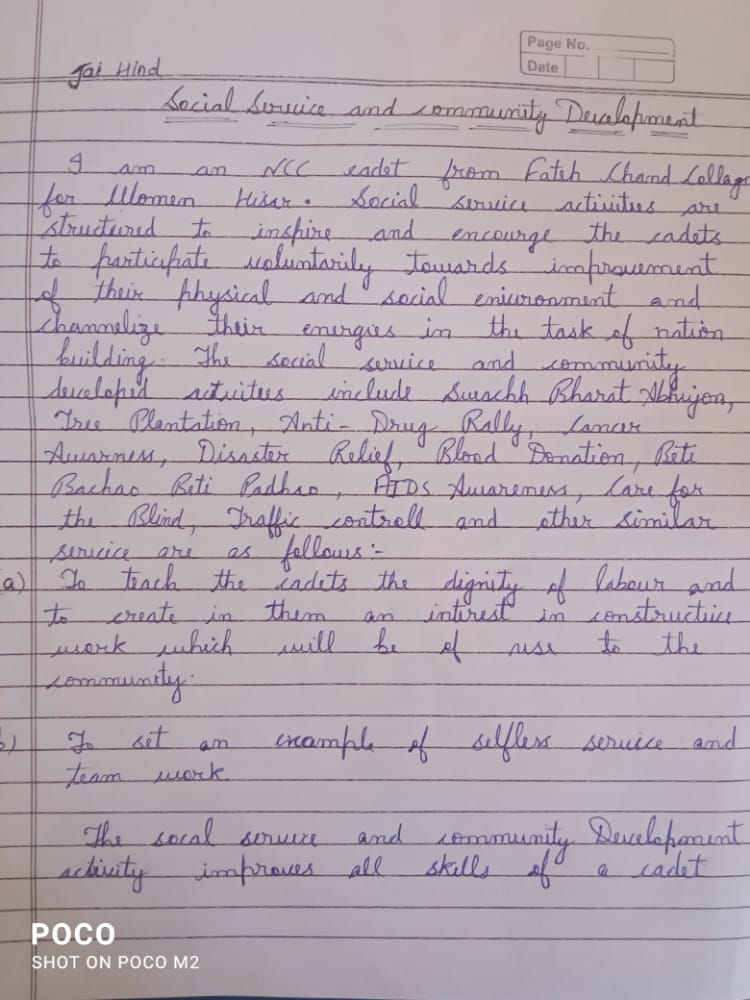 Page No.
Date
Jai Hind
Social Service and community Development
I am an NCC cadet from Fateh Chand Collage
for Women Hisar. Social service activities are
structured to inspire and encourge the cadets
to participate voluntarily towards improvement
of their physical and social enivronment and
channelize their energies in the task of nation
building. The social service and community
developed activities include Swachh Bharat Abhijon,
Tree Plantation, Anti-Drug Rally, Cancer
Awarness, Disaster Relief, Blood Donation, Beti
Bachao Beti Padhao, AIDS Awareness, Care for
the Blind, Traffic controll and other similar
service are as follows:-
a) To teach the cadets the dignity of labour and
to create in them an interest in constructive
work which will be of use to the
community.
b) To set an example of selfless service and
team work.
The socal service and community Development
activity improves all skills of a cadet
POCO
SHOT ON POCO M2